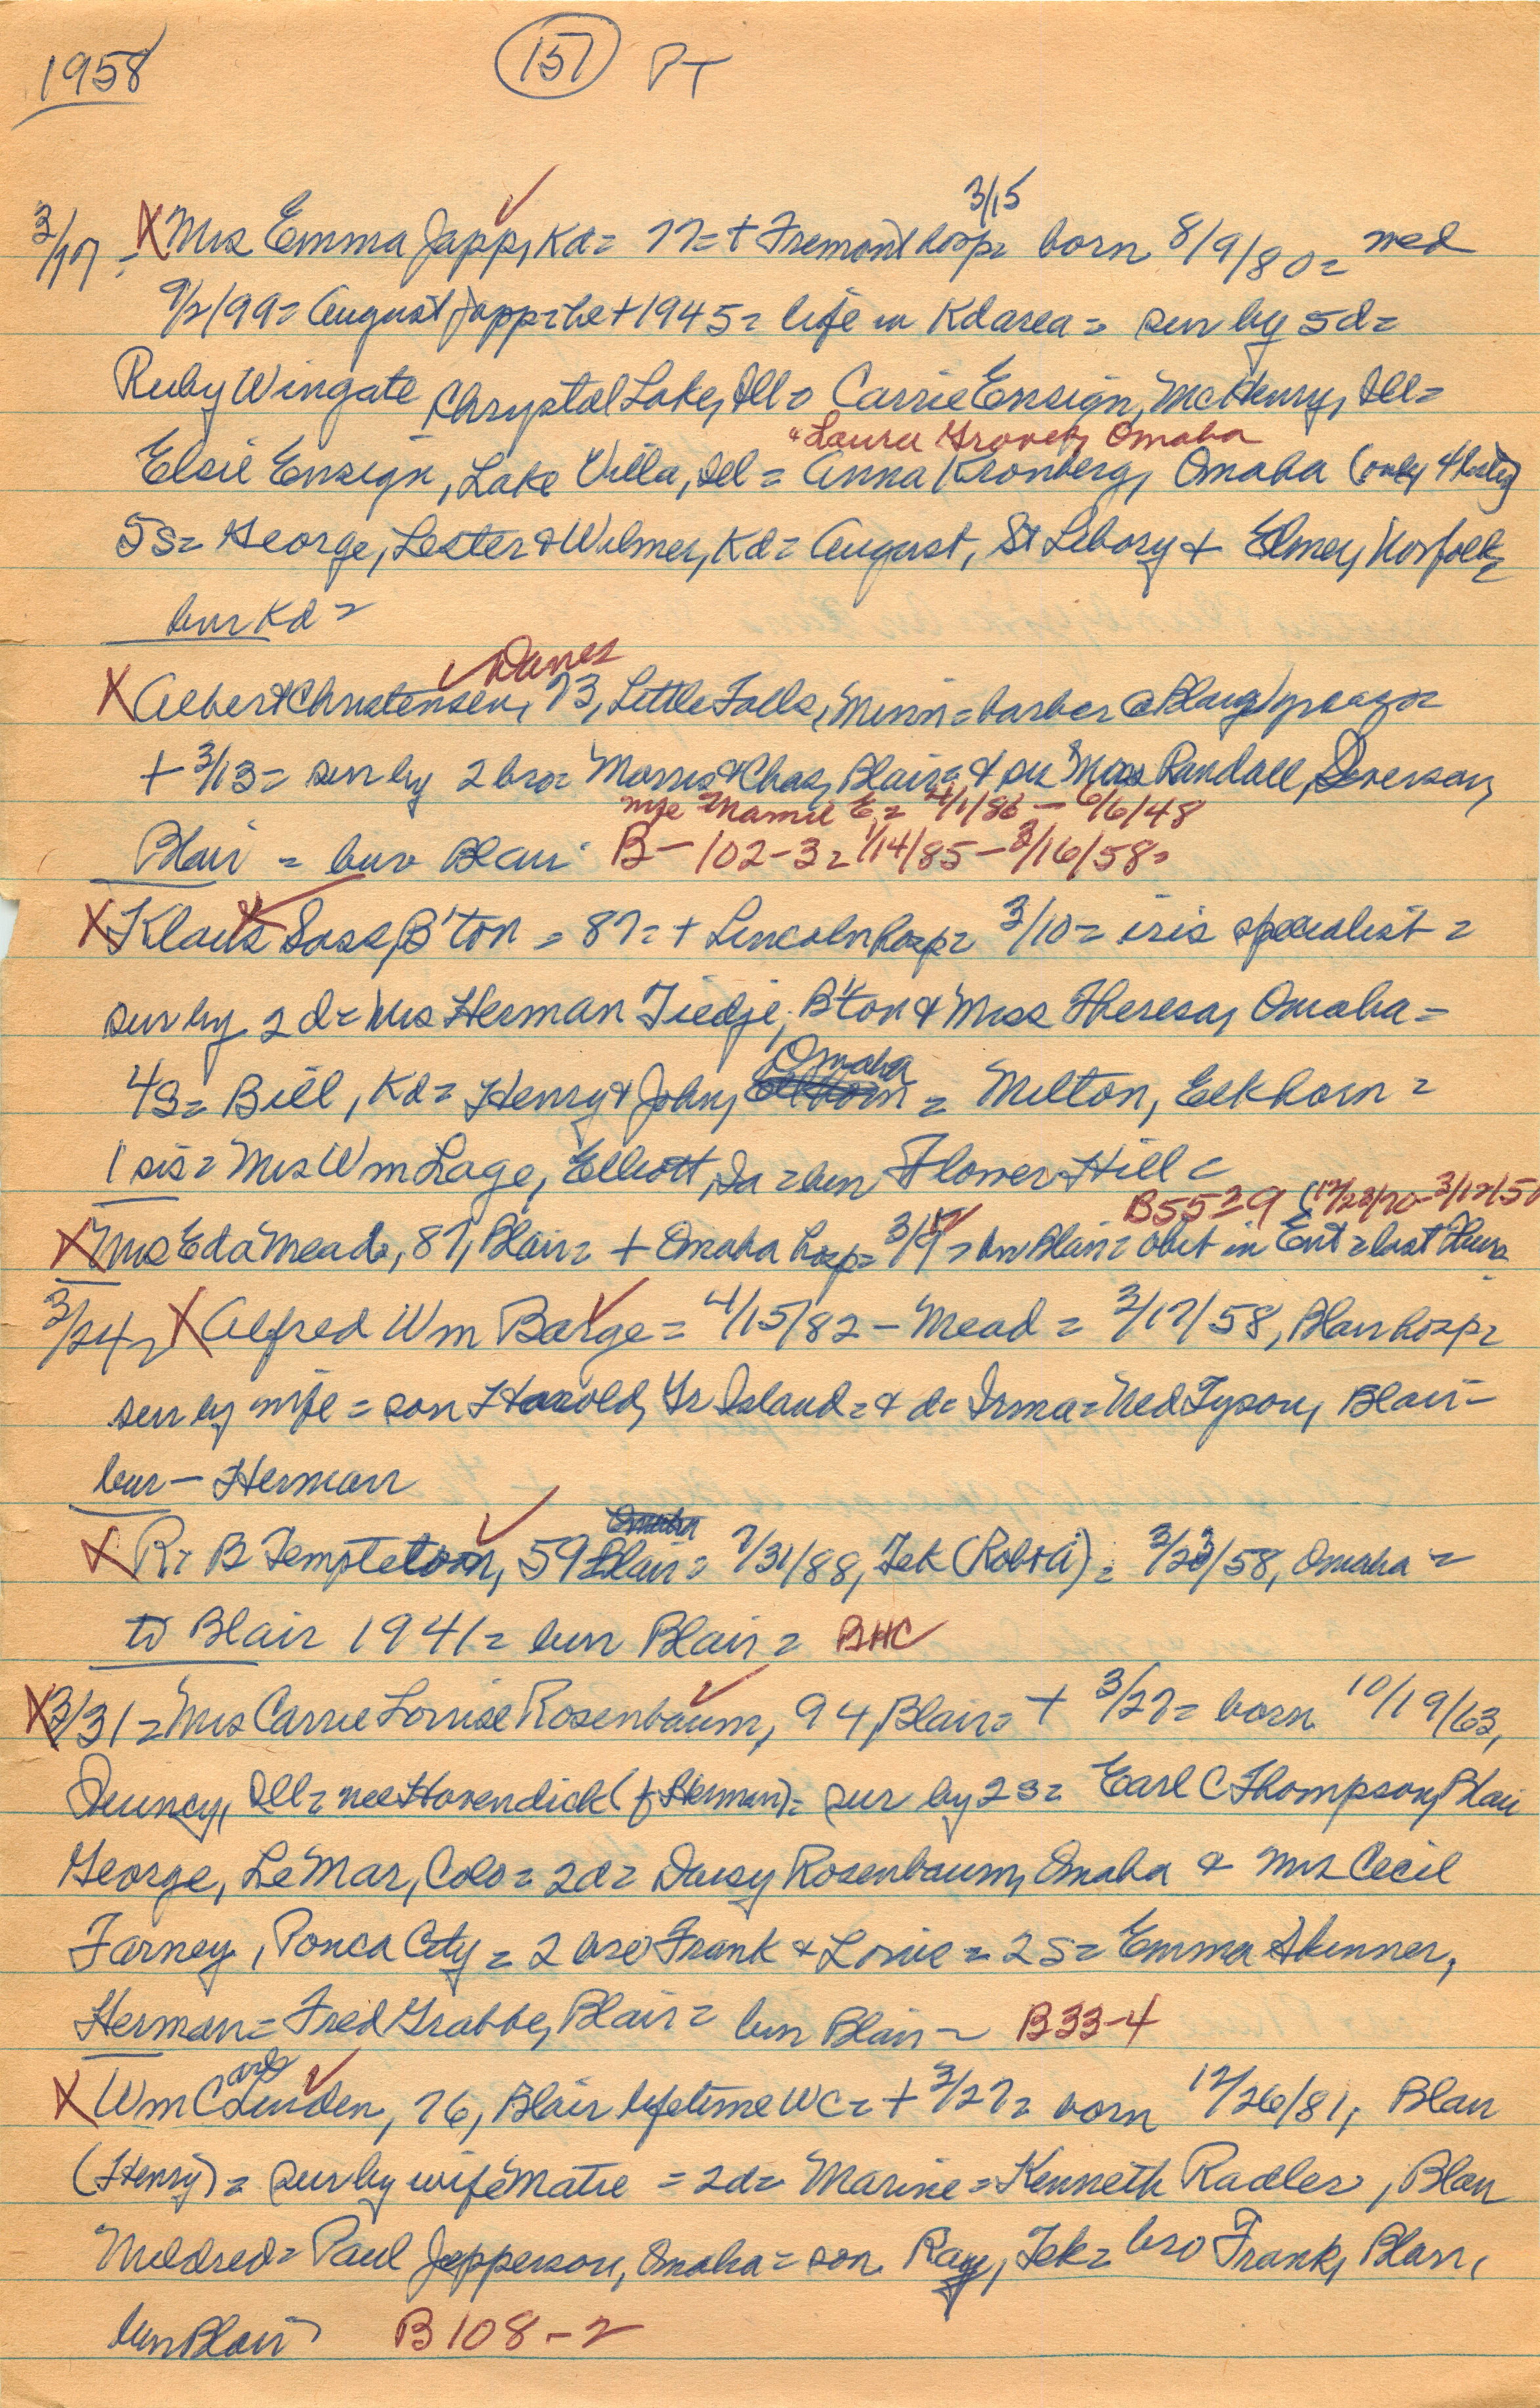 1958 (157) PT
3/15
3/17 - X Mrs Emma Japp, Kd = 77 = + Fremont hosp = born 8/9/80 = med
9/2/99 = August Japp = he + 1945 = life in Kd area = sur by 5d =
Ruby Wingate Chrystal Lake, Ill = Carrie Ensign, McHenry, Ill =
Laura Omaha
Elsie Ensign, Lake Villa, Ill = Anna Kronberg, Omaha (only 4 listed)
5s = George, Lester & Wilmer, Kd = August, St Libory + Elmer, Norfolk =
bur Kd =
Danes
X Albert Christensen, 73, Little Falls, Minn = barber @ Blair
+ 3/13 = sur by 2 bro = Morris & Chas, Blair = & sis Randall,
wife Mamie E = 4/1/86 - 6/6/48
Blair = bur Blair B - 102 - 3 = 1/14/85 - 3/16/58 =
X Klaus Sass, B'ton = 87 = + Lincoln hosp = 3/10 = iris specialist =
sur by 2 d = Mrs Herman Tiedje, B'ton & Miss Theresa, Omaha =
Omaha
4s = Bill, Kd = Henry & John, Elkhorn = Milton, Elkhorn =
1 sis = Mrs Wm Lage, Elliott, Ia = bur Flower Hill =
B5529 (12/23/70 - 3/12/58
X Mrs Eda Mead, 87, Blair = + Omaha hosp = = bur Blair = obit in Ent = last Thurs
3/24 = X Alfred Wm Barge = 4/15/82 - Mead = 3/17/58, Blair hosp =
sur by wife = son Harold, Gr Island = & d = Irma = Ned Tyson, Blair -
bur - Herman
Omaha
X R B Templeton, 59 Blair = 7/31/88, Tek (Robt A) = 3/23/58, Omaha =
to Blair 1941 = bur Blair = BHC
X 3/31 = Mrs Carrie Louise Rosenbaum, 94, Blair = + 3/27 = born 10/19/63,
Quincy, Ill = nee Hovendick (f Herman) = sur by 2s = Earl C Thompson, Blair
George, LeMar, Colo = 2d = Daisy Rosenbaum, Omaha & Mrs Cecil
Farney, Ponca City = 2 bro Frank & Louie = 2s = Emma Skinner,
Herman = Fred Grabbe, Blair = bur Blair - B33-4
Carl
X Wm C Linden, 76, Blair lifetime WC = + 3/27 = born 12/26/81, Blair
(Henry) = sur by wife Matie = 2d = Marine = Kenneth Radler, Blair
Mildred = Paul Jepperson, Omaha = son Ray, Tek = bro Frank, Blair,
bur Blair B 108 - 2